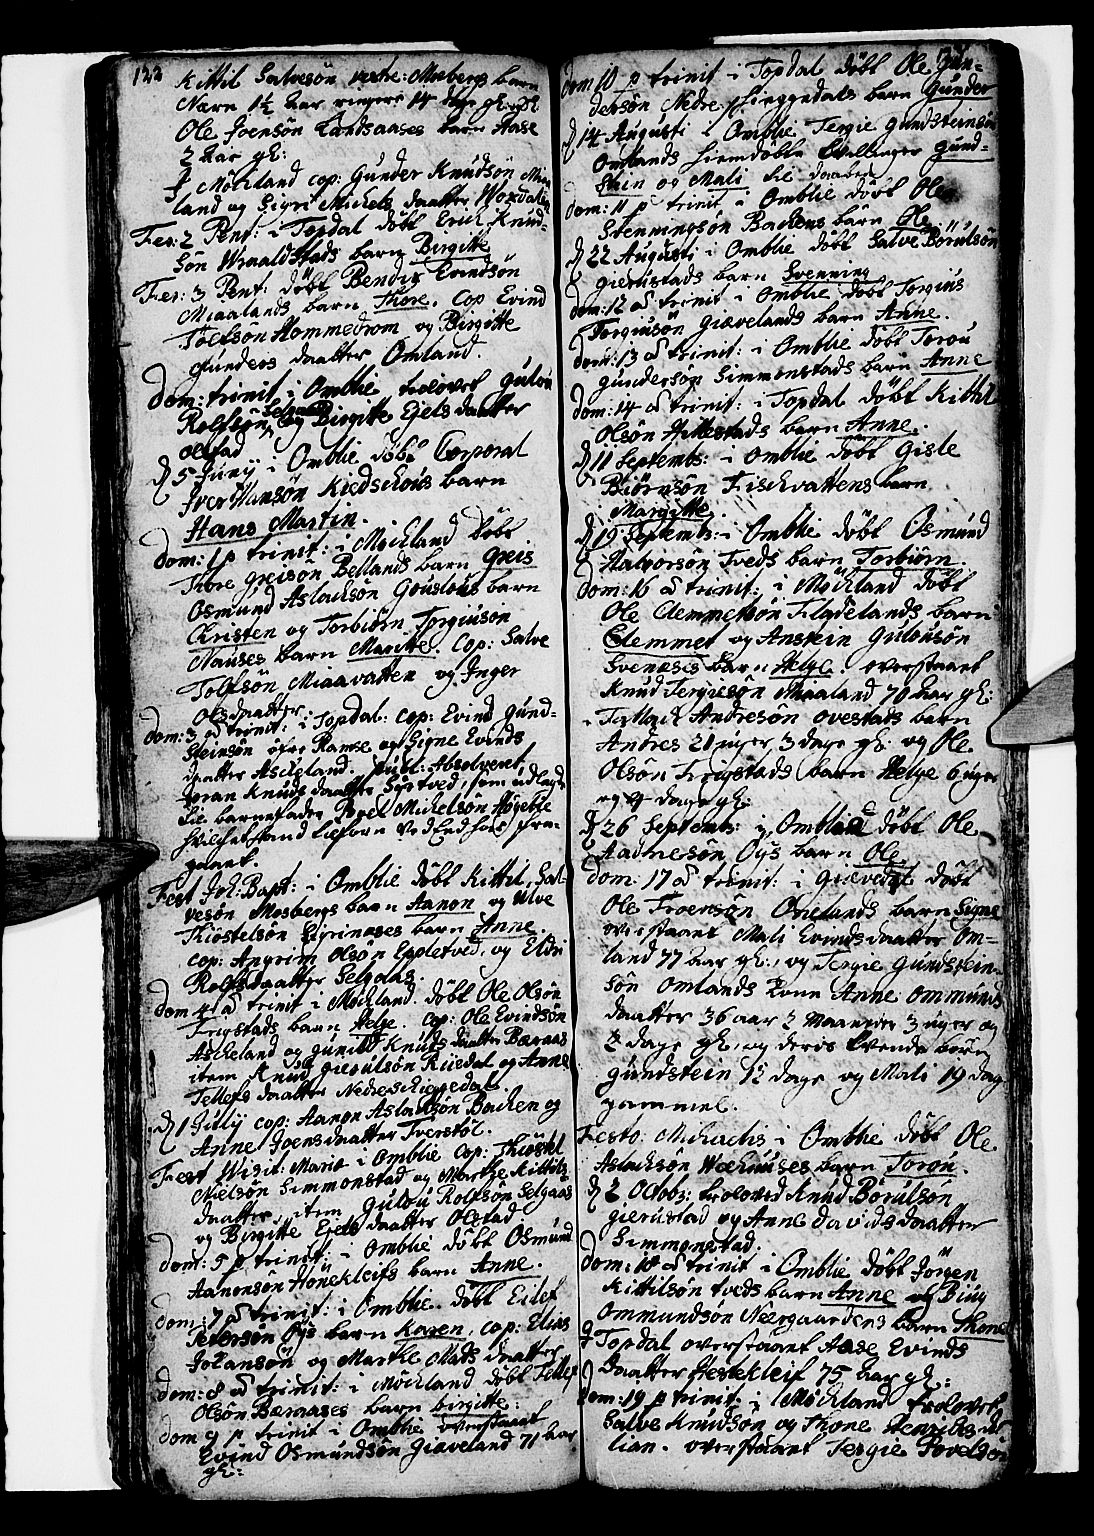 122
Kittil Salvesön vestre: Mosbergs barn
Næru 1½ aar ringere 14 dage gl: og
Ole Joensön Landsaases barn Aase
2 aar gl:
I Möckland cop: Gunder Knudsön
land og Sigri Michels daatter Woxdalen
Fer: 2 Pent: i Topdal döbt Erich Knud-
sön Wraaldstads barn Birgitte
Fer: 3 Pent: döbt Bendix Evindsön
Miaalands barn Thore. Cop Evind
Tolfsön Hommedrom og Birgitte
Gunders daatter Omland.
Dom: trinit: i Omblie trolovet Gulou
Rolfsön Selgaas og Birgitte Ejels daatter
Olstad
D 5 Juny i Omblie döbt Corporal
Iver Hansön Kiedschöus barn
Hans Martin.
Dom: 1 p trinit: i Möckland döbt
Tore Greisön Bellands barn Greis
Osmund Aslachsön Gouslaus barn
Christen og Torbiörn Torgiuson
Nauses barn Maritte. Cop: Salve
Tolfsön Miaavatten og Inger
Olsdaatter.
dom: 3 a trinit: i Topdal: cop: Evind Gund-
steinsön öfre Ramse og Signe Evinds
daatter Ascheland. publ: Absolvent
Joran Knuds daatter Syrtved, som udlagde
til barnefader Povel Michelson Högetie
hvilchet stand tilforn ved Eed har fra-
gaaet.
Fest Joh: Bapt: i Omblie döbt Kittil Sal-
vesön Mosbergs barn Aanon og Ulve
Thiöstelsön Ligrinæses barn Anne.
cop: Angrim Olsön Eppletved, og Eldri
Rolfsdaatter Selgaas.
dom 4 a trinit i Möckland. döbt Ole Olsön
Frigstads barn Helge. Cop: Ole Evindsön
Ascheland og Gunild Knuds daatter Bæraas
item Knud Gierulsön Rusdal og Anne
Tellefs daatter Nedre Schieggedal.
D 1 Jully cop: Aanon Aslachsön Bachen og
Anne Joensdaatter Tverstöl.
Fest Visit: Mariæ i Omblie Cop: Thiöstel
Nielsön Simmonstad og Marthe Kittils
daatter, item Gulou Rolfsön Selgaas
og Birgitte Ejels daatter Olstad
dom: 5 p trinit: i Omblie döbt Osmund
Aanonsön Hönekleifs barn Anne.
dom: 7 a trinit: i Omblie. döbt Eilef
Peterson Öys barn Karen. cop: Elias
Johansön og Marthe Mads daatter
dom: 8 a trinit: i Möckland döbt Tellef
Olsön Bæraases barn birgitte:
dom 9 p trinit i Omblie overstaaet
Evind Osmundsön Giæveland 71 aar
gl:
dom 10 p trinit i Topdal döbt Ole Gun-
dersön Nedre Schieggedals barn Gunder
D 14 Augusti i Omblie Tergie Gundsteinsön
Omlands hiemdöbte Tvillinger Gund-
stein og Mali til daaben
dom: 11 p trinit i Omblie döbt Ole
Stenningsön Bachens barn Ole
D 22 Augusti i Omblie döbt Salve Börulsön
Gierustads barn Svenning
dom: 12 a trinit i Omblie döbt Torgius
Torgiusön Giævelands barn Anne.
dom: 13 a trinit: i Omblie döbt Torou
Gundersön Simmonstads barn Anne
dom: 14 a trinit: i Topdal döbt Kittil
Olsön Hillestads barn Anne.
D 11 Septembs: i Omblie döbt Gisle
Biörnsön Fischvattens barn
Margitte.
D 19 Septembs: i Omblie döbt Osmund
Halvorsön Tveds barn Torbiörn.
dom: 16 a trinit: i Möckland döbt
Ole Clemmetsön Fladelands barn
Clemmet og Anstein Gulousön
Svenæses barn Helge. overstaaet
Knud Tergiesön Miaaland 70 aar gl:
Tallach Andresön Ovestads barn
Andres 21 uger 3 dage gl: og Ole
Olsön Frigstads barn Helge 6 uger
og 4 dage gl:
D 26 Septemb: i Omblie döbt Ole
Aadnesön Öys barn Ole
dom: 17 a trinit: i Giævedal döbt
Ole Troensön Orelands barn Signe
overstaaet Mali Evindsdaatter Om-
land 77 aar gl:, og Tergie Gundstein-
sön Omlands kone Anne Ommunds
daatter 36 aar 2 Maaneder 3 uger og
2 dage gl:, og deris tvende börn
Gundstein 12 dage og Mali 19 dag
gammel.
Festo: Michaelis i Omblie döbt Ole
Aslachsön Wæhuuses barn Torou.
D 2 Octobr: trolovet Knud Börulsön
Gierustad og Anne Davids daatter
Simmonstad.
Dom: 18 a trinit i Omblie döbt Jörgen
Kittilsön Tveds barn Anne og
Ommundsön Neergaardens barn Thone
Topdal overstaaet Aase Evinds
daatter Hestekleif 75 aar gl:
dom: 19 p trinit i Möckland trolovet
Salve Knudsön og Thone Henrichs
lian. overstaaet Tergie Povelsön